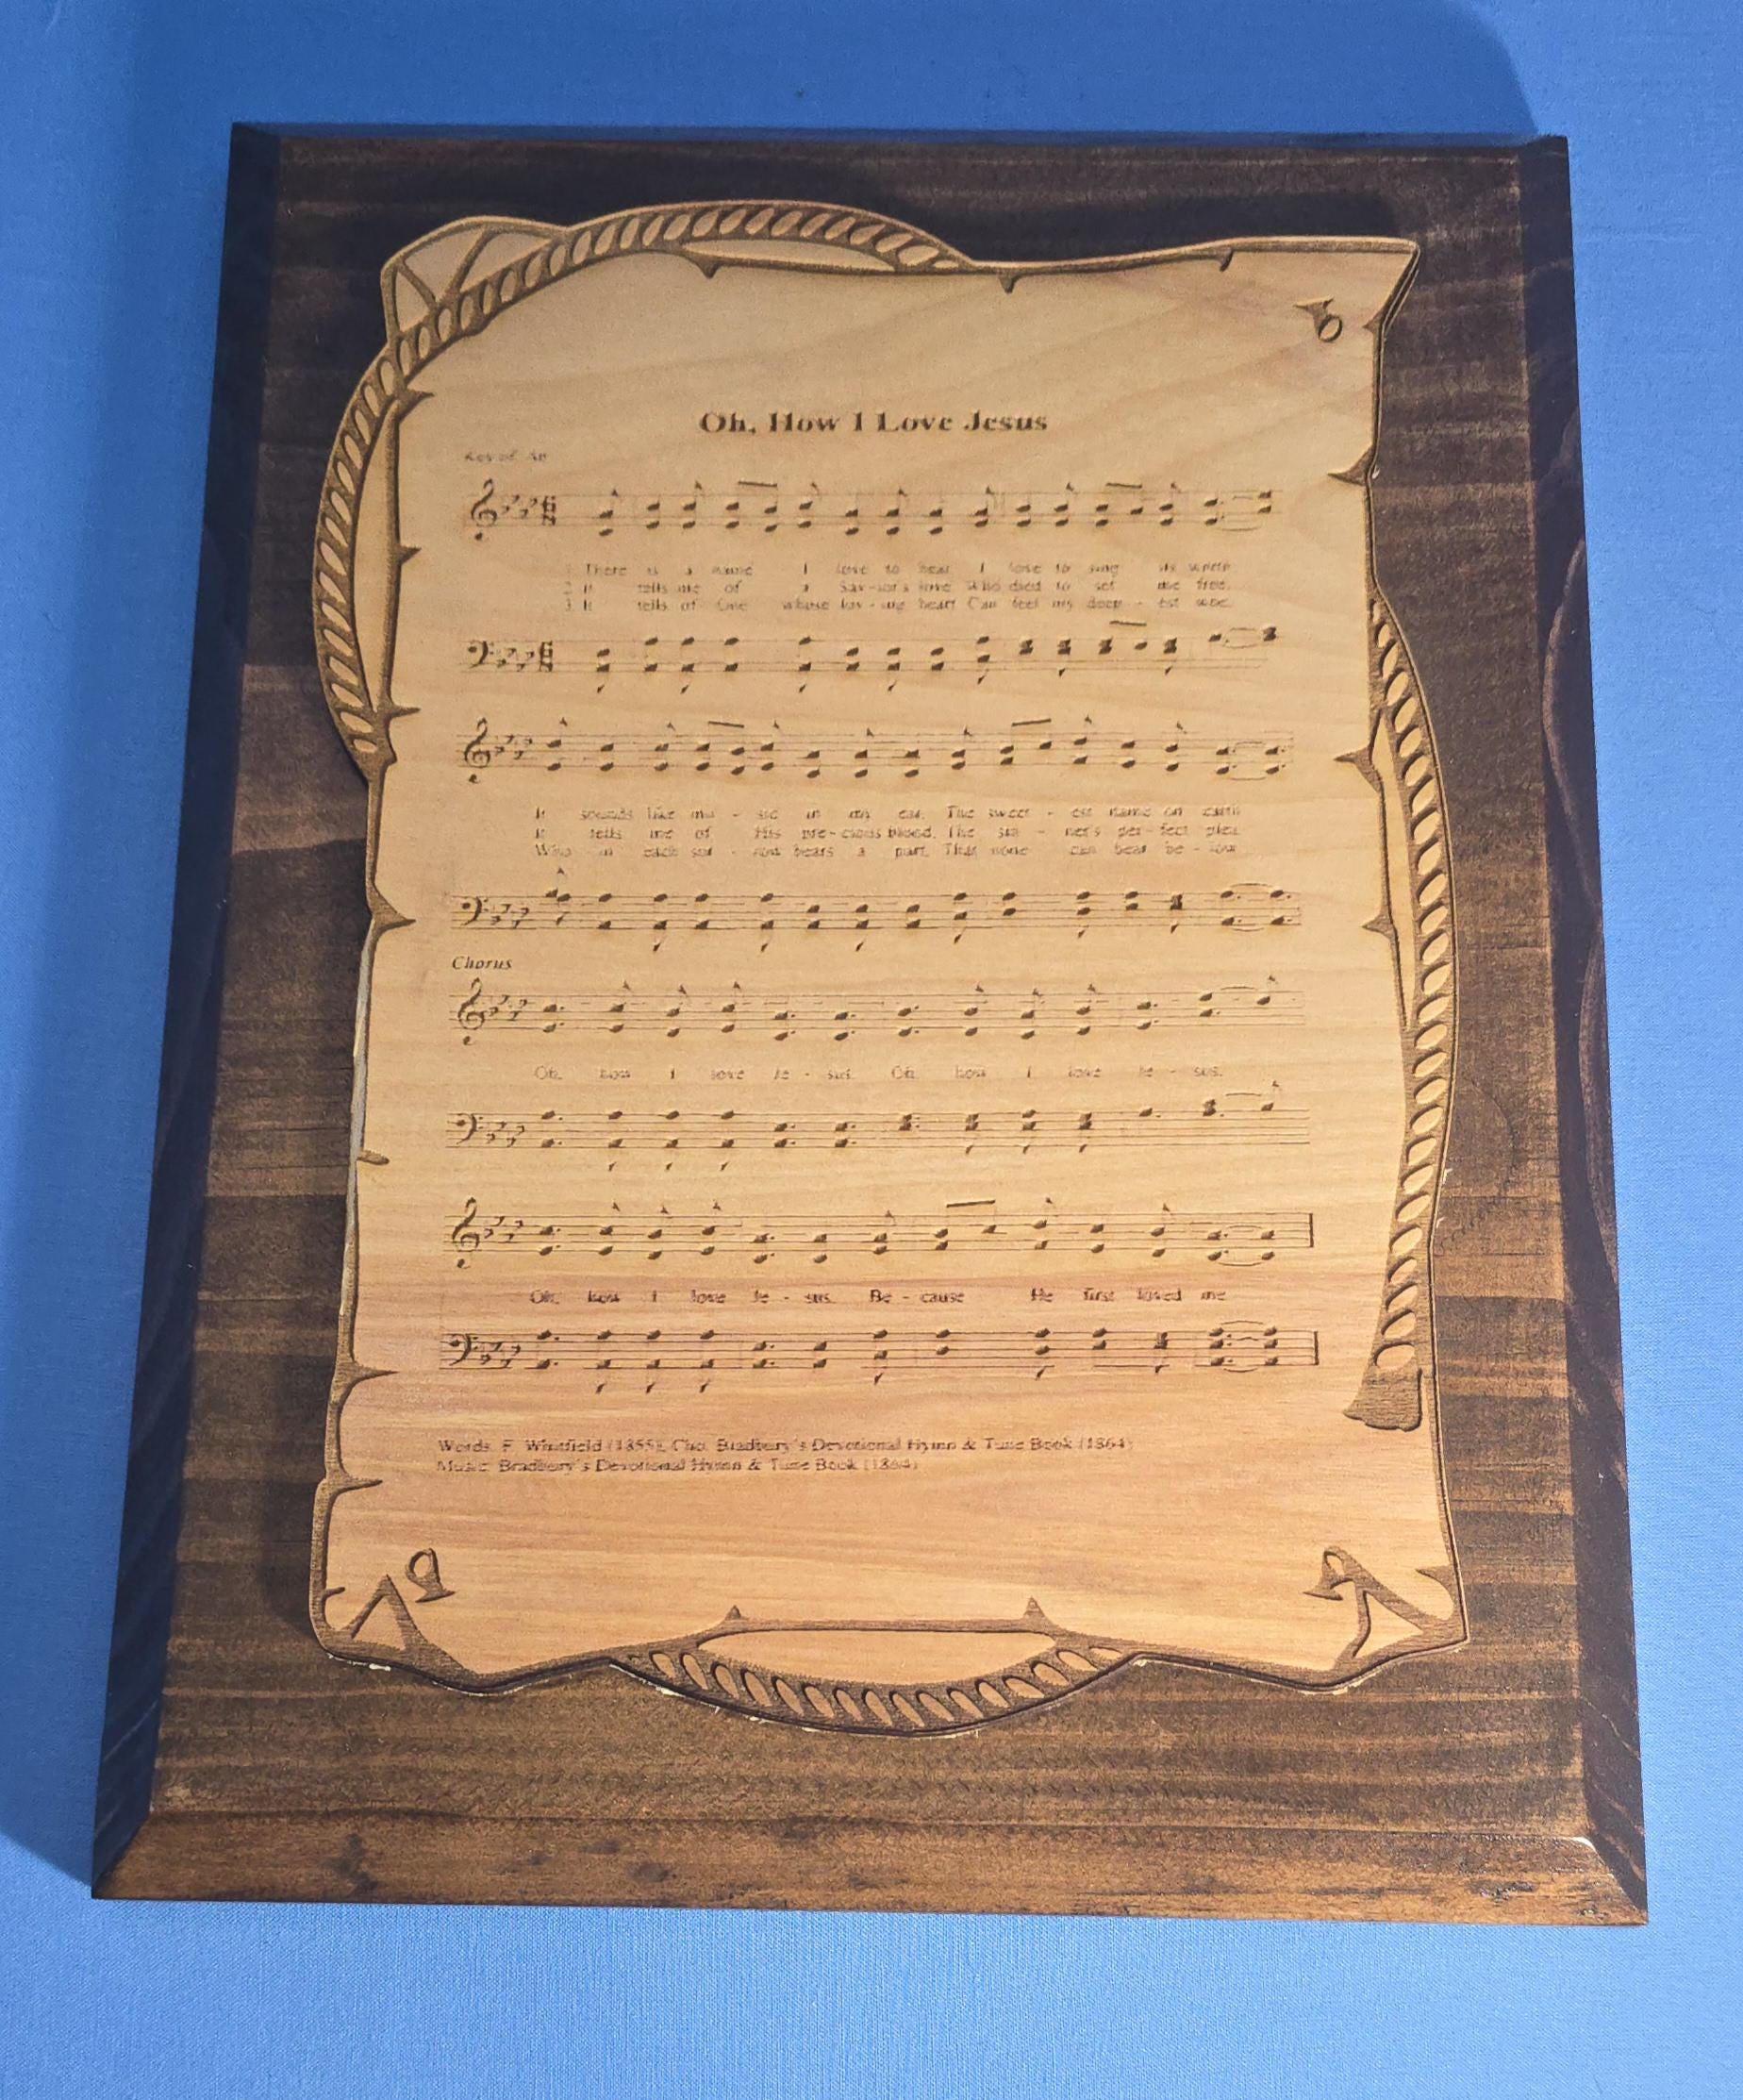 Oh, How I Love Jesus
Key of Ab
1 There is a name I love to hear I love to sing its worth
2 It tells me of a Sav-ior's love Who died to set me free.
3 It tells of One whose lov-ing heart Can feel my deep-est woe.
It sounds like mu-sic in my ear. The sweet-est name on earth
It tells me of His pre-cious blood. The sin-ner's per-fect plea
Who in each sor-row bears a part. That none can bear be-low
Chorus
Oh, how I love Je-sus. Oh, how I love Je-sus.
Oh, how I love Je-sus. Be-cause He first loved me
Words: F. Whitfield (1855), Cho. Bradbury's Devotional Hymn & Tune Book (1864)
Music: Bradbury's Devotional Hymn & Tune Book (1864)